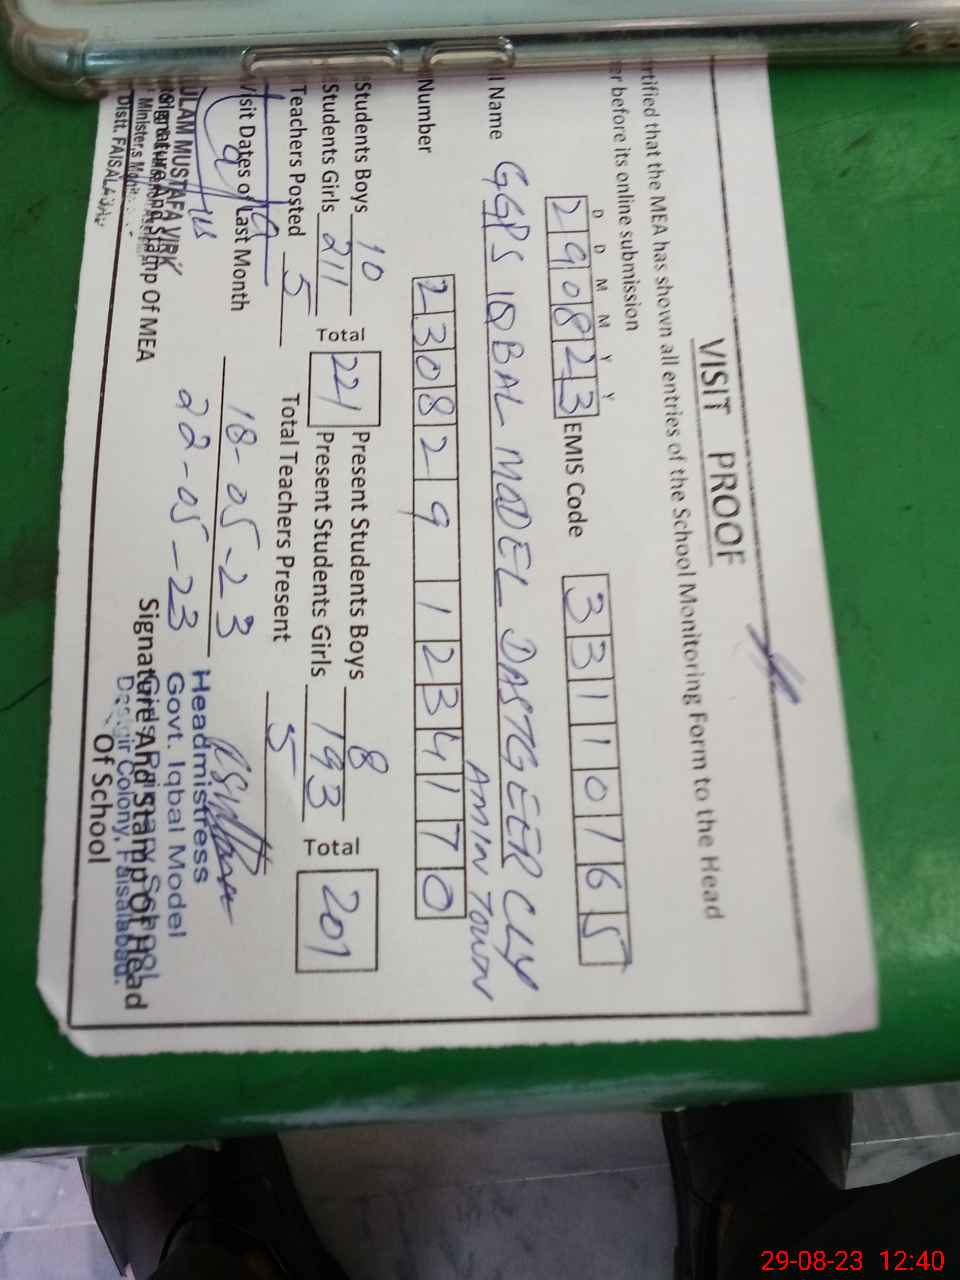 VISIT PROOF
rtified that the MEA has shown all entries of the School Monitoring Form to the Head
er before its online submission
D D M M Y Y
290823 EMIS Code 33110165
l Name GGPS IQBAL MODEL DASTGEER CLY
AMIN TOWN
Number 2308291234170
Students Boys 10 Present Students Boys 8
Students Girls 211 Total 221 Present Students Girls 193 Total 201
Teachers Posted 5 Total Teachers Present 5
Visit Dates of Last Month 18-05-23
22-05-23
ULAM MUSTAFA VIRK
Signature And Stamp Of MEA
Distt. FAISALABAD
Headmistress
Govt. Iqbal Model
Girls Primary School
Dastgir Colony, Faisalabad.
Signature And Stamp Of Head
Of School
29-08-23 12:40